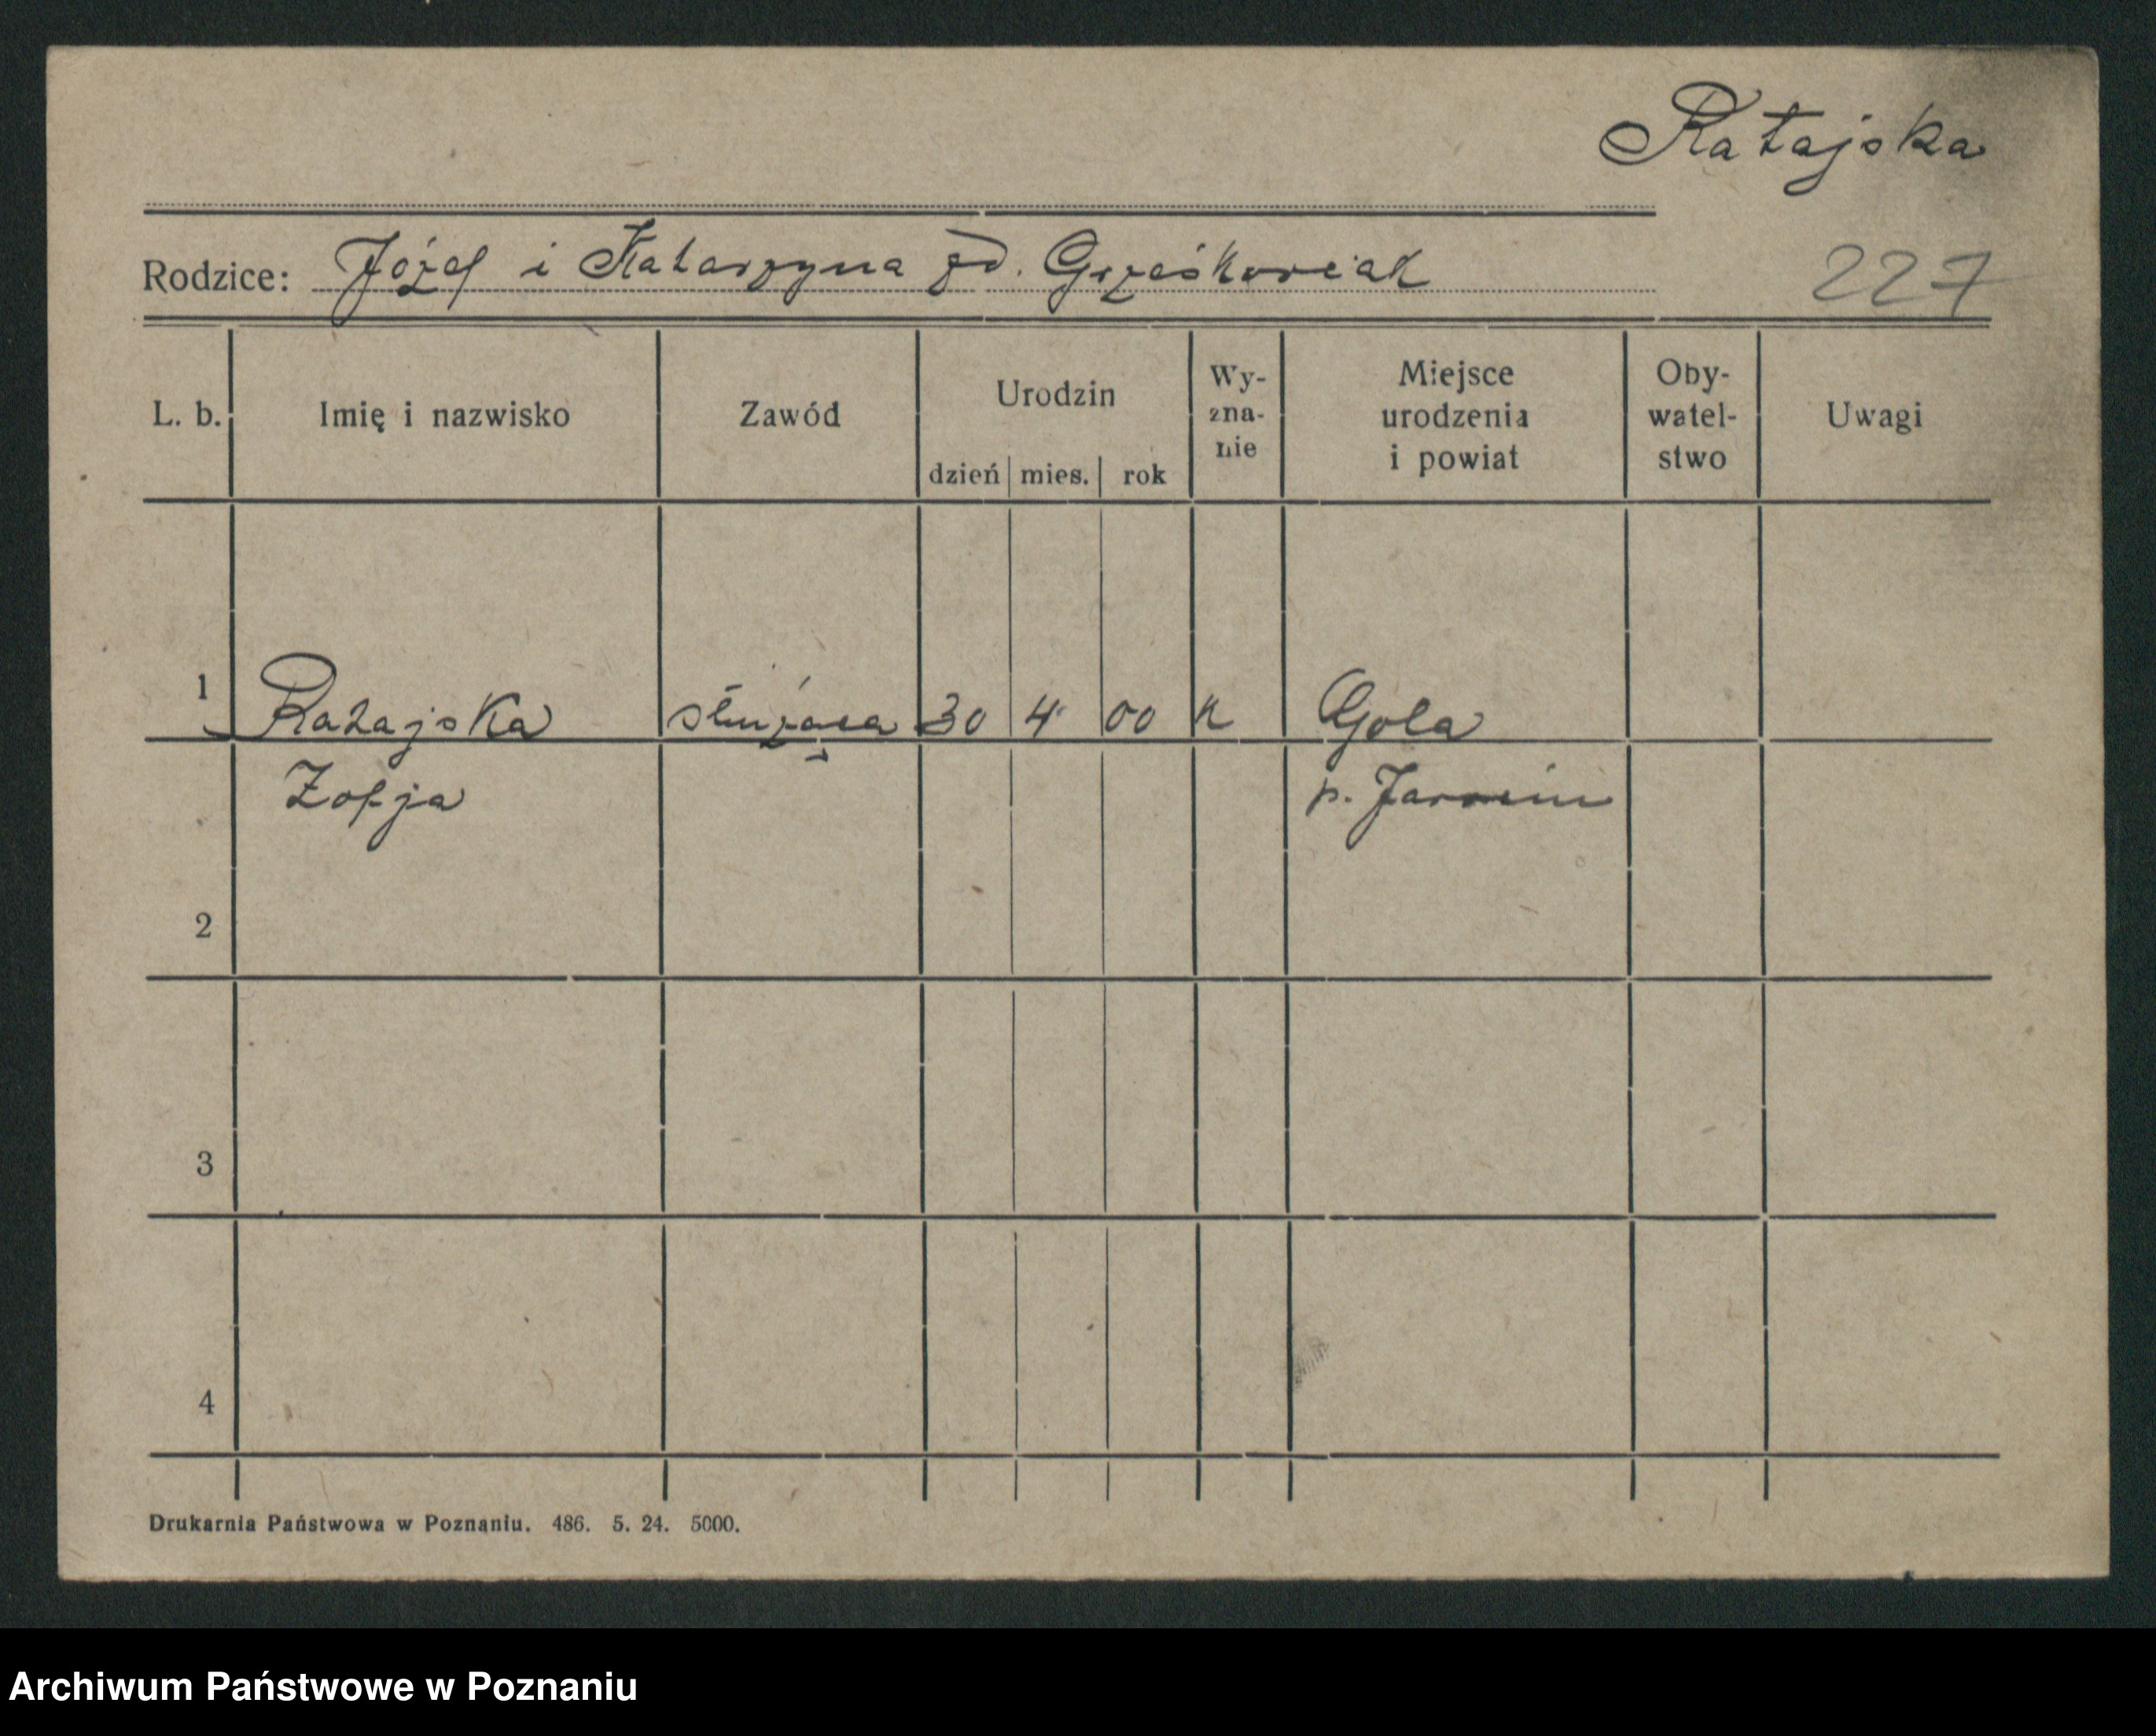 Ratajska
Rodzice: Józef i Katarzyna zd. Grześkowiak
227
L. b. Imię i nazwisko Zawód Urodzin dzień mies. rok Wy-zna-nie Miejsce urodzenia i powiat Oby-watel-stwo Uwagi
1 Ratajska służąca 30 4 00 k Gola
Zofja p. Jarocin
2
3
4
Drukarnia Państwowa w Poznaniu. 486. 5. 24. 5000.
Archiwum Państwowe w Poznaniu